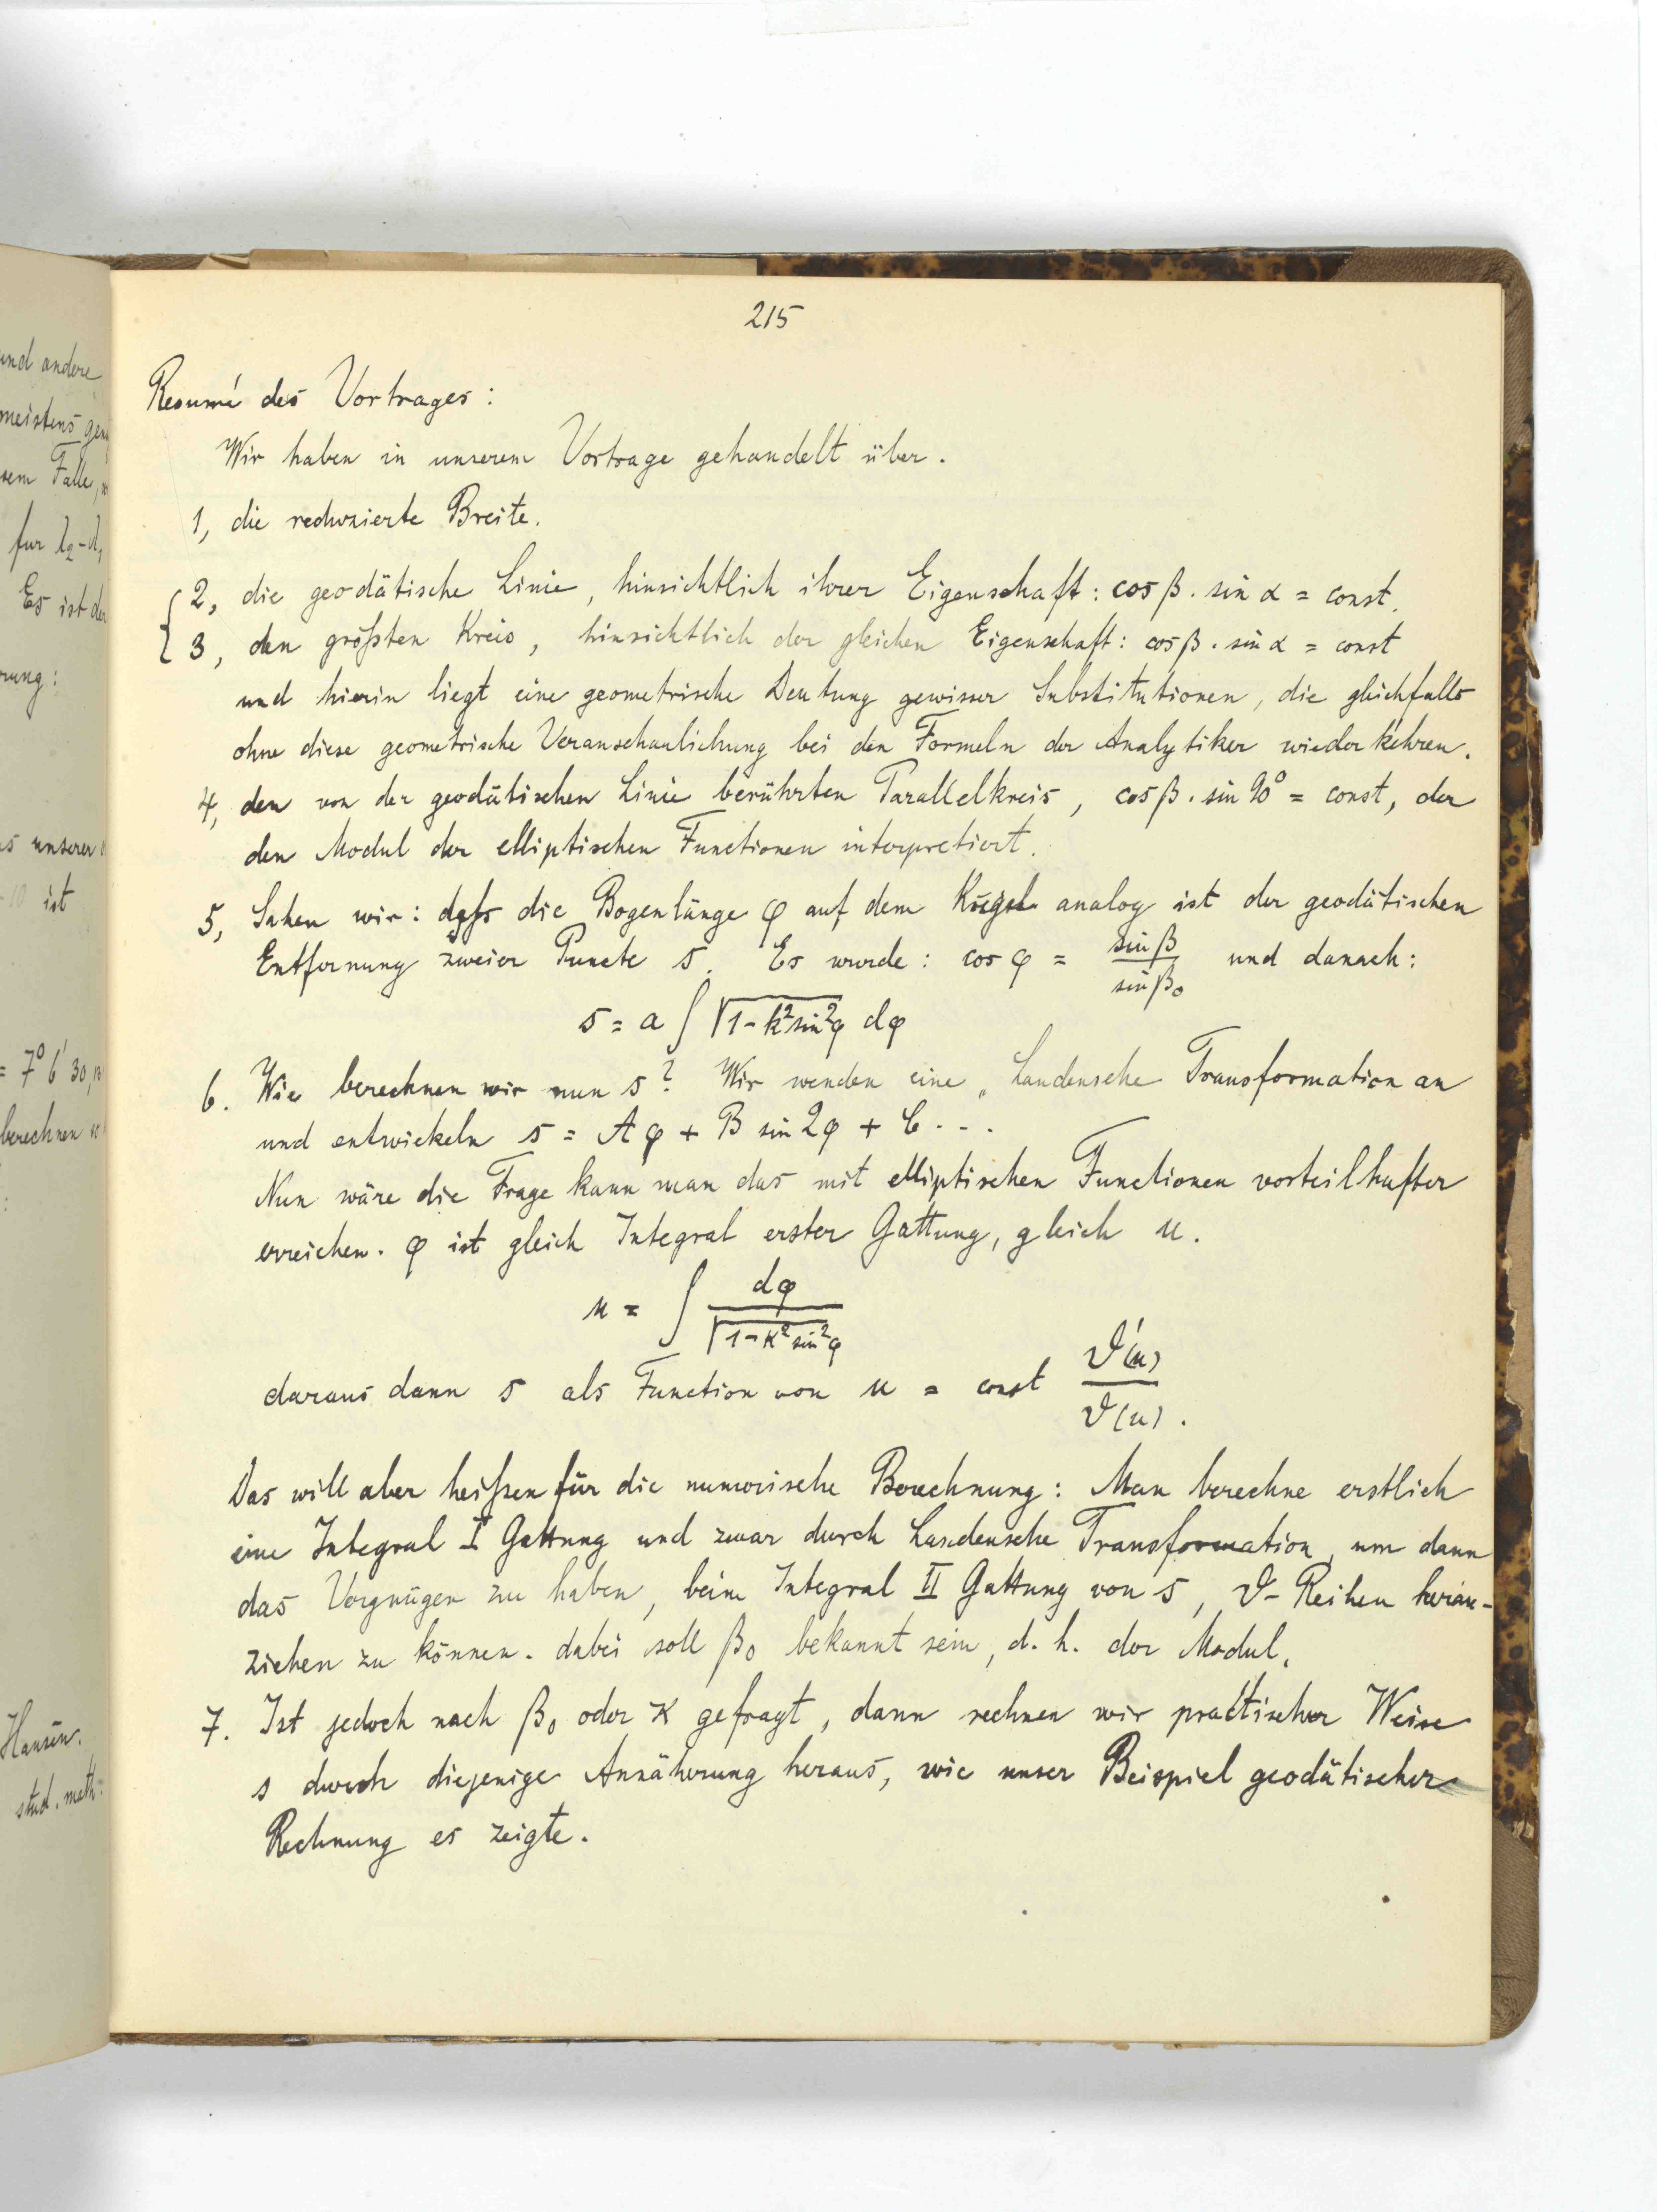 215
Resumé des Vortrages:
Wir haben in unserem Vortrage gehandelt über.
1, die reduzierte Breite.
2, die geodätische Linie, hinsichtlich ihrer Eigenschaft: cos β . sin α = const.
3, den größten Kreis, hinsichtlich der gleichen Eigenschaft: cos β . sin α = const
und hierin liegt eine geometrische Deutung gewisser Substitutionen, die gleichfalls
ohne diese geometrische Veranschaulichung bei den Formeln der Analytiker wiederkehren.
4, den von der geodätischen Linie berührten Parallelkreis, cos β . sin 90° = const, der
den Modul der elliptischen Functionen interpretiert.
5, Sahen wir: daß die Bogenlänge φ auf dem Kugel analog ist der geodätischen
Entfernung zweier Puncte s. Es wurde: cos φ = sin β / sin β₀ und danach:
s = a ∫ √(1-k² sin²φ) dφ
6. Wie berechnen wir nun s? Wir wenden eine „Landensche Transformation an
und entwickeln s = A φ + B sin 2φ + C ...
Nun wäre die Frage kann man das mit elliptischen Functionen vorteilhafter
erreichen. φ ist gleich Integral erster Gattung, gleich u.
u = ∫ dφ / √(1-k² sin²φ)
daraus dann s als Function von u = const ϑ'(u) / ϑ(u).
Das will aber heißen für die numerische Berechnung: Man berechne erstlich
eine Integral I Gattung und zwar durch Landensche Transformation, um dann
das Vergnügen zu haben, beim Integral II Gattung von s, ϑ-Reihen heran-
ziehen zu können. dabei soll β₀ bekannt sein, d. h. der Modul.
7. Ist jedoch nach β₀ oder k gefragt, dann rechnen wir practischer Weise
s durch diejenige Annäherung heraus, wie unser Beispiel geodätischer
Rechnung es zeigte.
und andere
meistens
Falle,
für λ₂-λ₁
Es ist
unserer
ist
= 7° 6' 30
berechnen
Hansen.
stud. math: